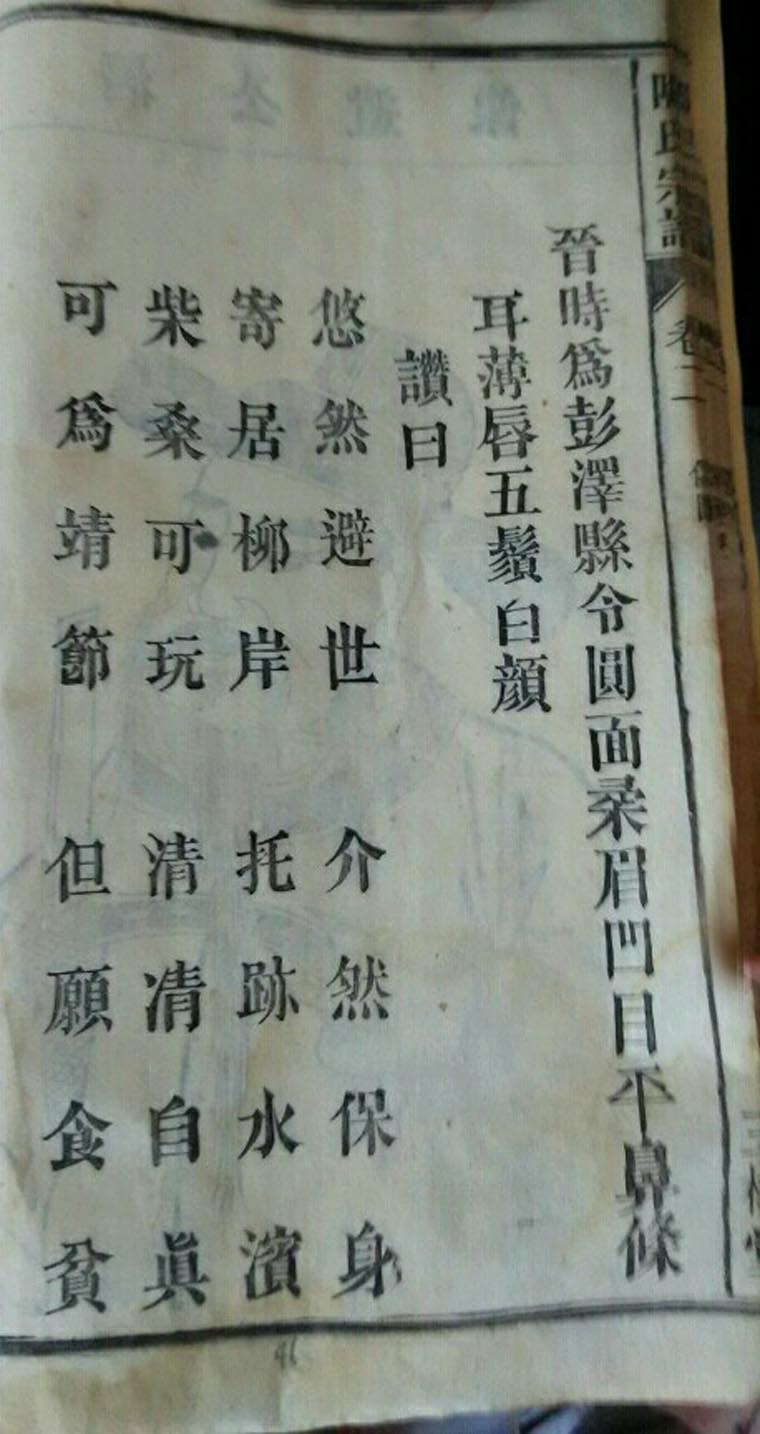 氏宗譜 卷二
晉時爲彭澤縣令圓面柔眉凹目平鼻條
耳薄唇五鬚白顔
讚曰
悠然避世 介然保身
寄居柳岸 托跡水濱
柴桑可玩 清清自眞
可爲靖節 但願食貧
46